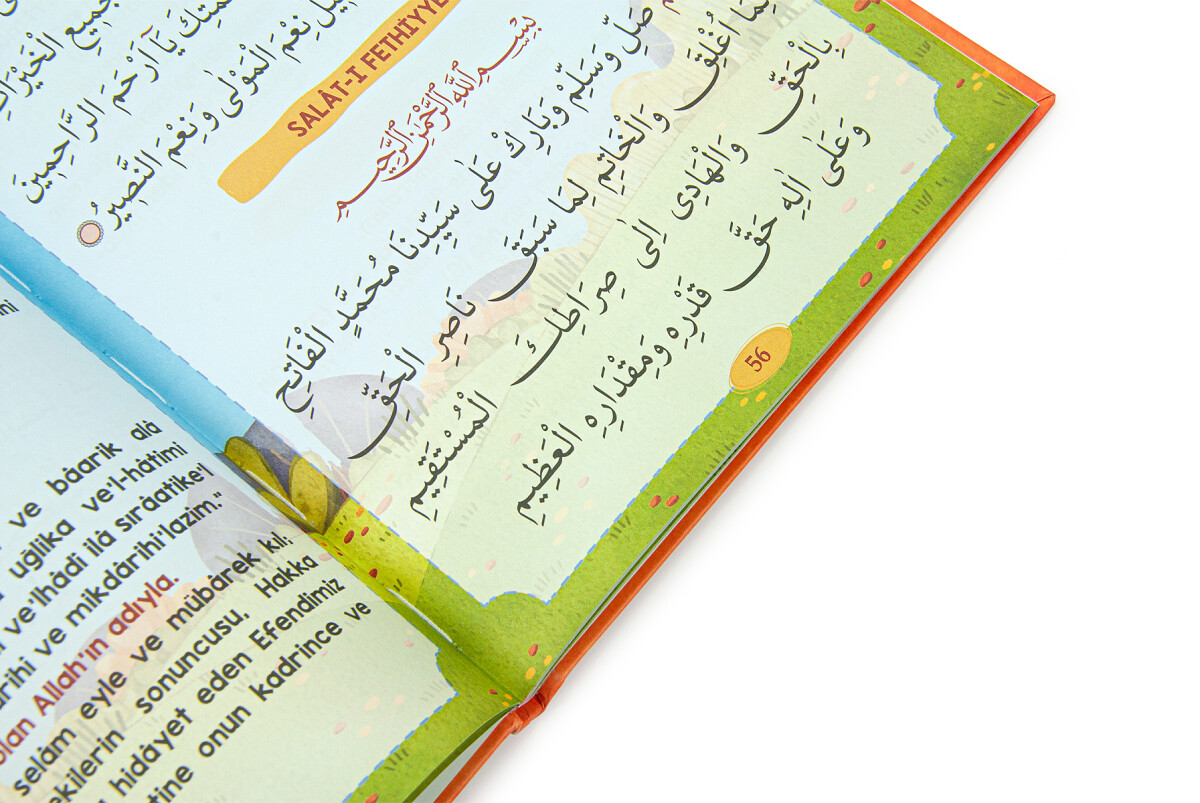 جَمِيعِ الْخَيْرَ
يَآ اَرْحَمَ الرَّاحِمِينَ
نِعْمَ الْمَوْلٰى وَنِعْمَ النَّصِيرُ
SALÂT-I FETHİYYE
بِسْمِ اللّٰهِ الرَّحْمٰنِ الرَّحِيمِ
صَلِّ وَسَلِّمْ وَبَارِكْ عَلٰى سَيِّدِنَا مُحَمَّدٍ الْفَاتِحِ
لِمَا اُغْلِقَ وَالْخَاتِمِ لِمَا سَبَقَ نَاصِرِ الْحَقِّ
بِالْحَقِّ وَالْهَادِى اِلٰى صِرَاطِكَ الْمُسْتَقِيمِ
وَعَلٰى اٰلِهِ حَقَّ قَدْرِهِ وَمِقْدَارِهِ الْعَظِيمِ
56
ve bâarik alâ
uğlika ve'l-hâtimi
ve'lhâdi ilâ sırâatike'l
ve mikdârihi'lazim."
olan Allah'ın adıyla.
selâm eyle ve mübârek kıl;
sonuncusu, Hakka
hidâyet eden Efendimiz
onun kadrince ve